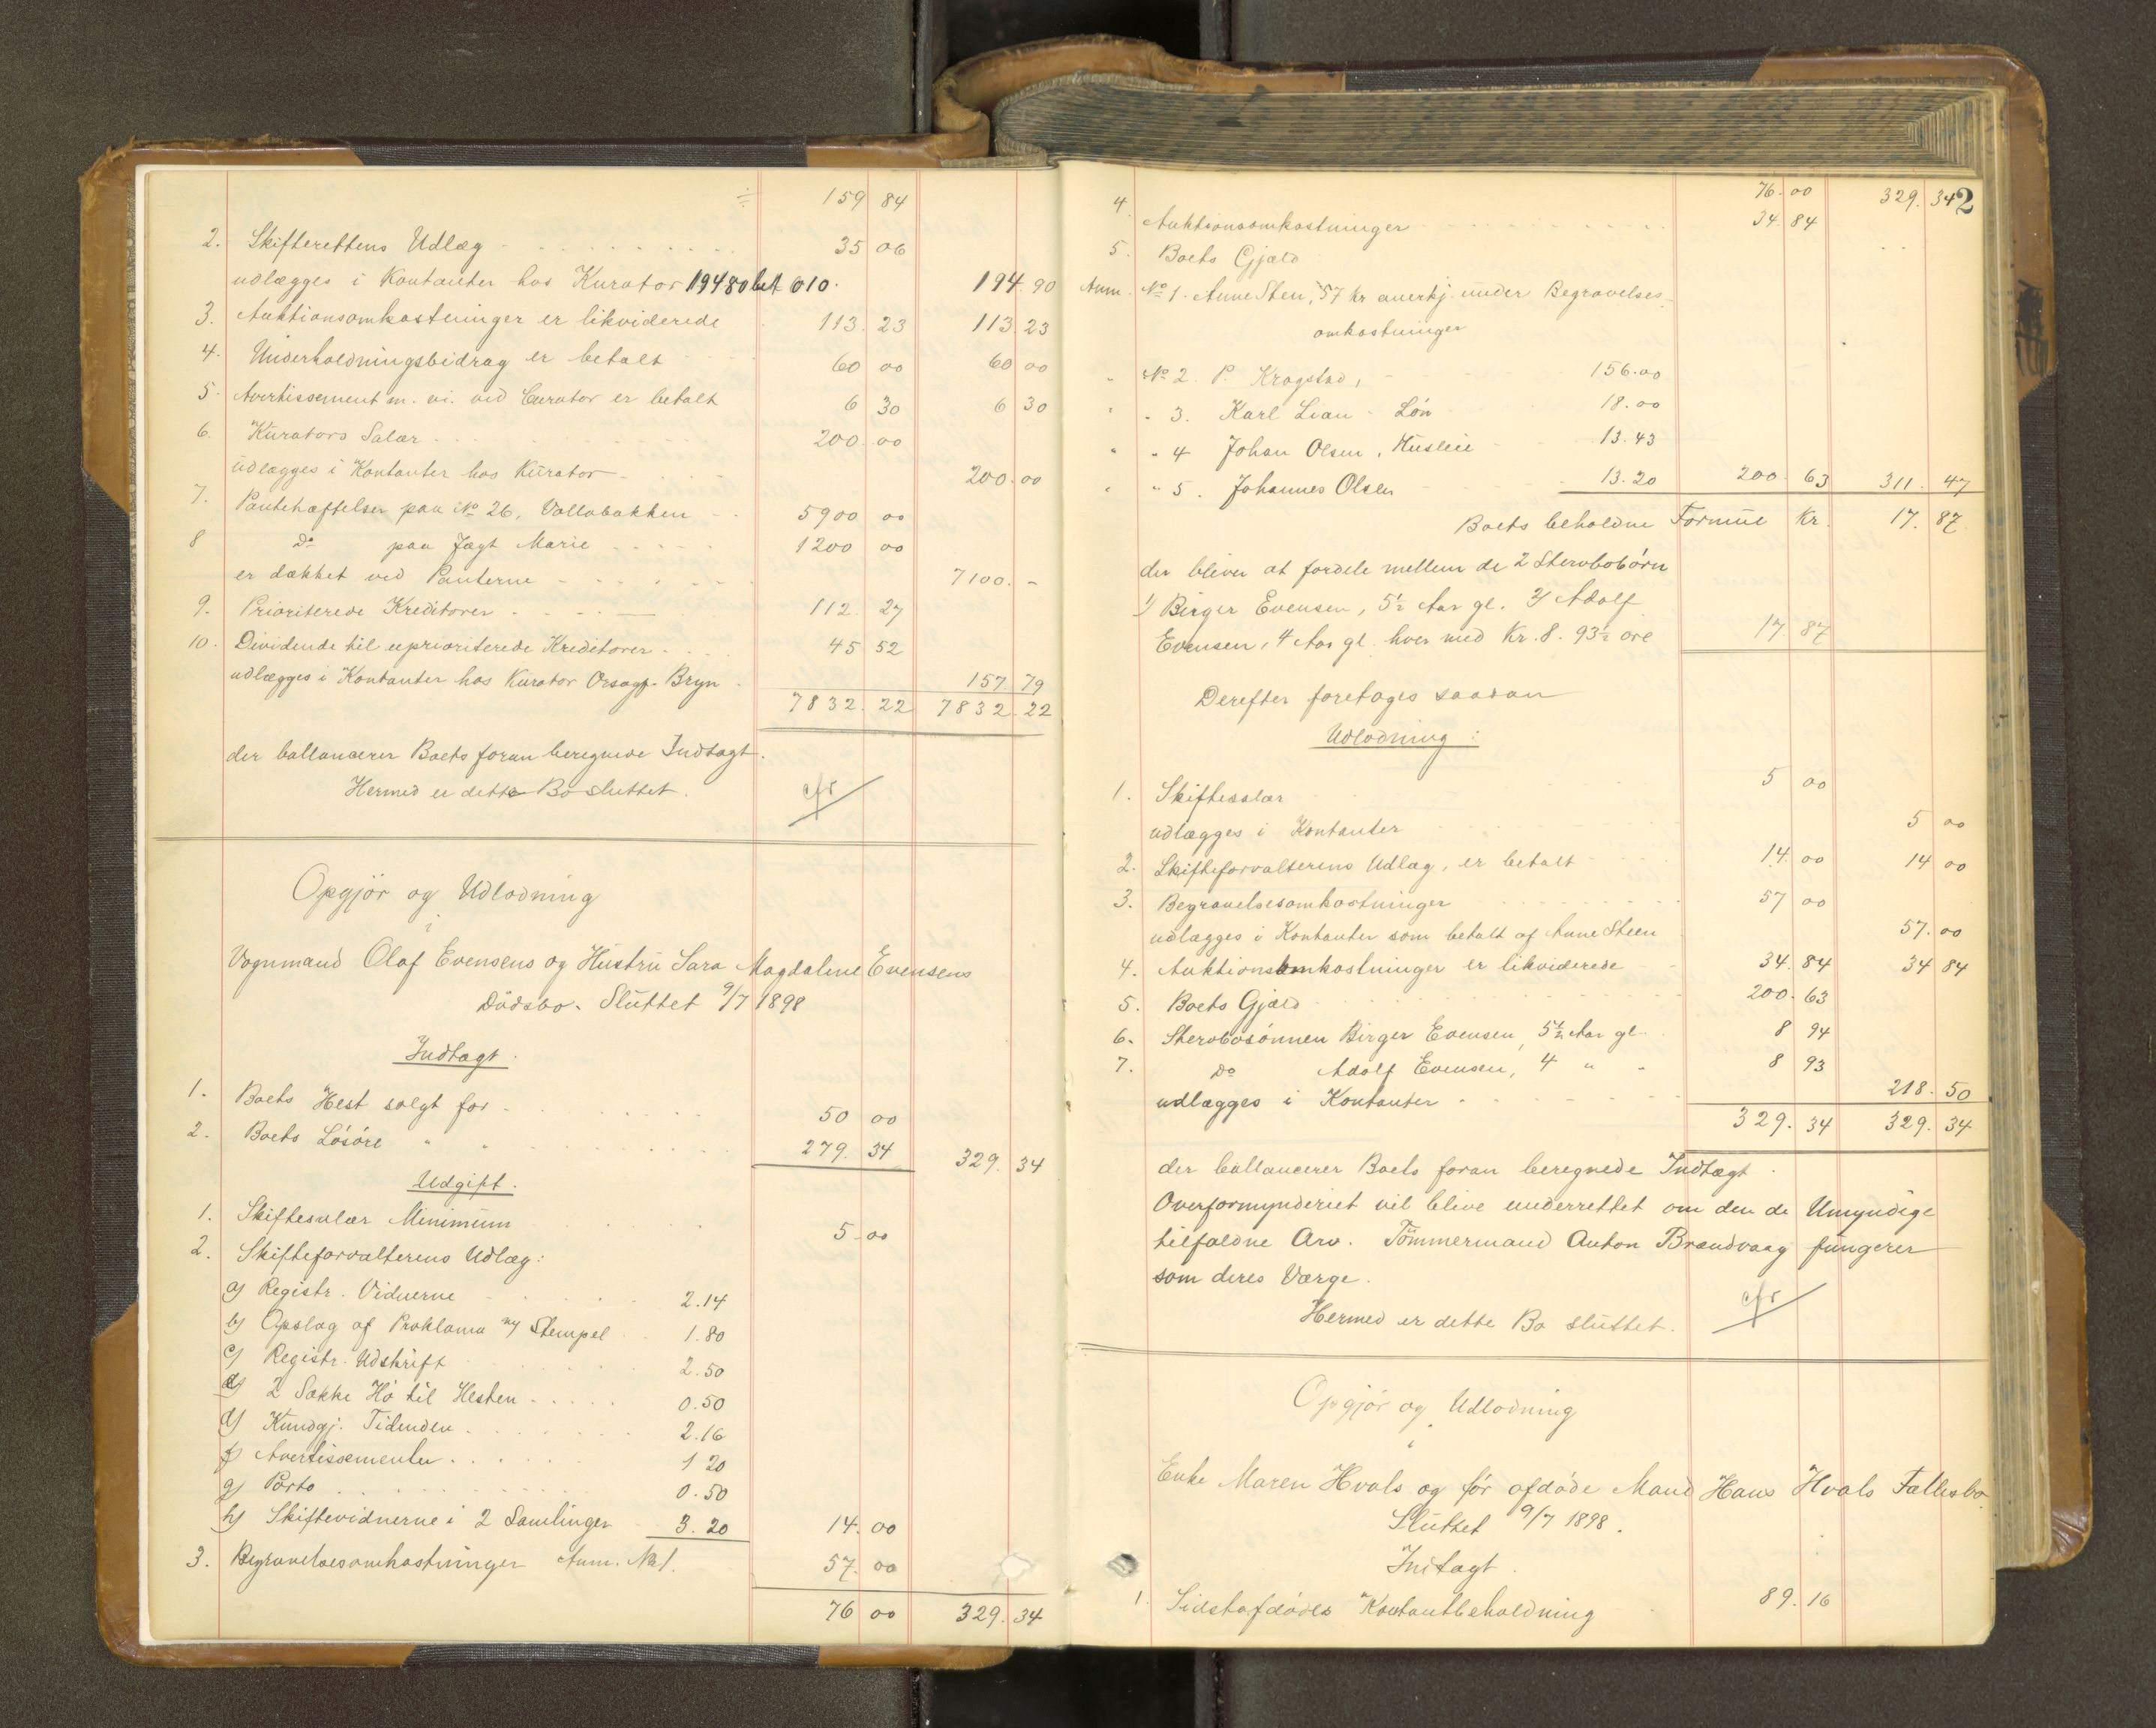 ÷ 159 84
2. Skifterettens Udlæg 35 06
udlægges i Kontanter hos Kurator 194 80 bet 010. 194 90
3. Auktionsomkostninger er likviderede 113. 23 113 23
4. Underholdningsbidrag er betalt 60 00 60 00
5. Avertissement m. vi. ved Curator er betalt 6 30 6 30
6. Kurators Salær 200. 00
udlægges i Kontanter hos Kurator 200. 00
7. Pantehæftelser paa No 26, Vollabakken 5900 00
8 Do paa Jagt Marie 1200 00
er dækket ved Panterne 7100. -
9. Prioriterede Kreditorer 112. 27
10. Dividende til uprioriterede Kreditorer 45 52
udlægges i Kontanter hos Kurator Orsagf. Bryn 157. 79
7832. 22 7832. 22
der ballancerer Boets foran beregnede Indtægt.
Hermed er dette Bo sluttet. cfr
Opgjør og Udlodning
i
Vognmand Olaf Evensens og Hustru Sara Magdaline Evensens
Dødsbo. Sluttet 9/7 1898
Indtægt.
1. Boets Hest solgt for 50 00
2. Boets Løsøre " " 279. 34 329. 34
Udgift.
1. Skiftesalær Minimum 5. 00
2. Skifteforvalterens Udlæg:
a) Registr. Vidnerne 2.14
b) Opslag af Proklama m/ Stempel 1.80
c) Registr. Udskrift 2.50
d) 2 Sække Hø til Hesten 0.50
d) Kundgj. Tidenden 2.16
f) Avertissementer 1 20
g) Porto 0.50
h) Skiftevidnerne i 2 Samlinger 3.20 14. 00
3. Begravelsesomkostninger Anm. No 1. 57. 00
76 00 329. 34
2
76. 00 329. 34
4. Auktionsomkostninger 34. 84
5. Boets Gjæld
Anm. No 1. Anne Sten, 57 Kr anerkj. under Begravelses-
omkostninger
" No 2. P. Kragstad, 156.00
" " 3. Karl Lian - Løn 18.00
" " 4 Johan Olsen, Husleie 13.43
" " 5. Johannes Olsen 13.20 200. 63 311. 47
Boets beholdne Formue Kr. 17. 87.
der bliver at fordele mellem de 2 Stervbobørn
1) Birger Evensen, 5½ Aar gl. 2) Adolf
Evensen, 4 Aar gl. hver med Kr. 8. 93½ øre 17. 87
Derefter foretages saadan
Udlodning:
1. Skiftesalær 5 00
udlægges i Kontanter 5 00
2. Skifteforvalterens Udlæg, er betalt 14. 00 14 00
3. Begravelsesomkostninger 57 00
udlægges i Kontanter som betalt af Anne Steen 57. 00
4. Auktionsomkostninger er likviderede 34. 84 34 84
5. Boets Gjæld 200. 63
6. Stervbosønnen Birger Evensen, 5½ Aar gl. 8 94
7. Do Adolf Evensen, 4 " " 8 93
udlægges i Kontanter 218. 50
329. 34 329. 34
der ballancerer Boets foran beregnede Indtægt.
Overformynderiet vil blive underrettet om den de Umyndige
tilfaldne Arv. Tømmermand Anton Brandvaag fungerer
som deres Værge.
Hermed er dette Bo sluttet. cfr
Opgjør og Udlodning
i
Enke Maren Hvals og før afdøde Mand Hans Hvals Fællesbo.
Sluttet 9/7 1898.
Indtægt.
1. Sidstafdødes Kontantbeholdning 89. 16